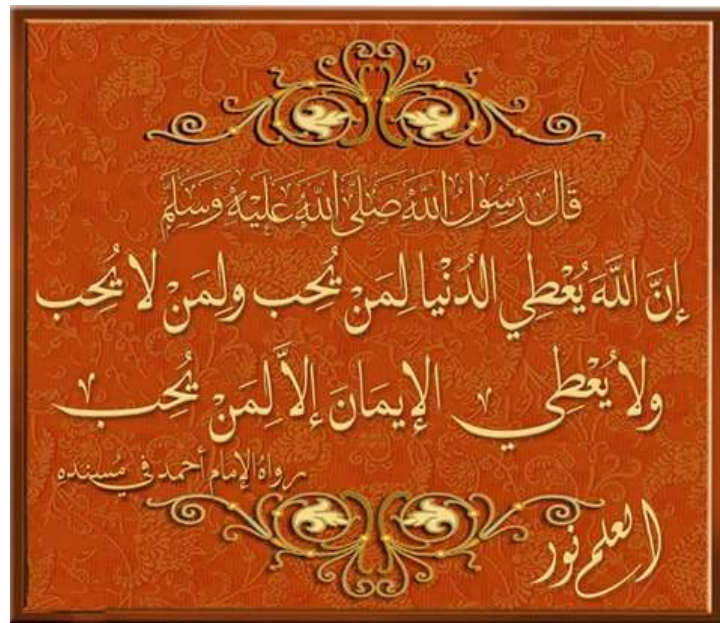 قَالَ رَسُولُ اللهِ صَلَّى اللهُ عَلَيْهِ وَسَلَّمَ
إِنَّ اللَّهَ يُعْطِي الدُنْيا لِمَنْ يُحِب ولِمَنْ لا يُحِب
ولا يُعْطِي الإِيمَانَ إِلاَّ لِمَنْ يُحِب
رواهُ الإمام أحمد في مُسنده
العلم نور